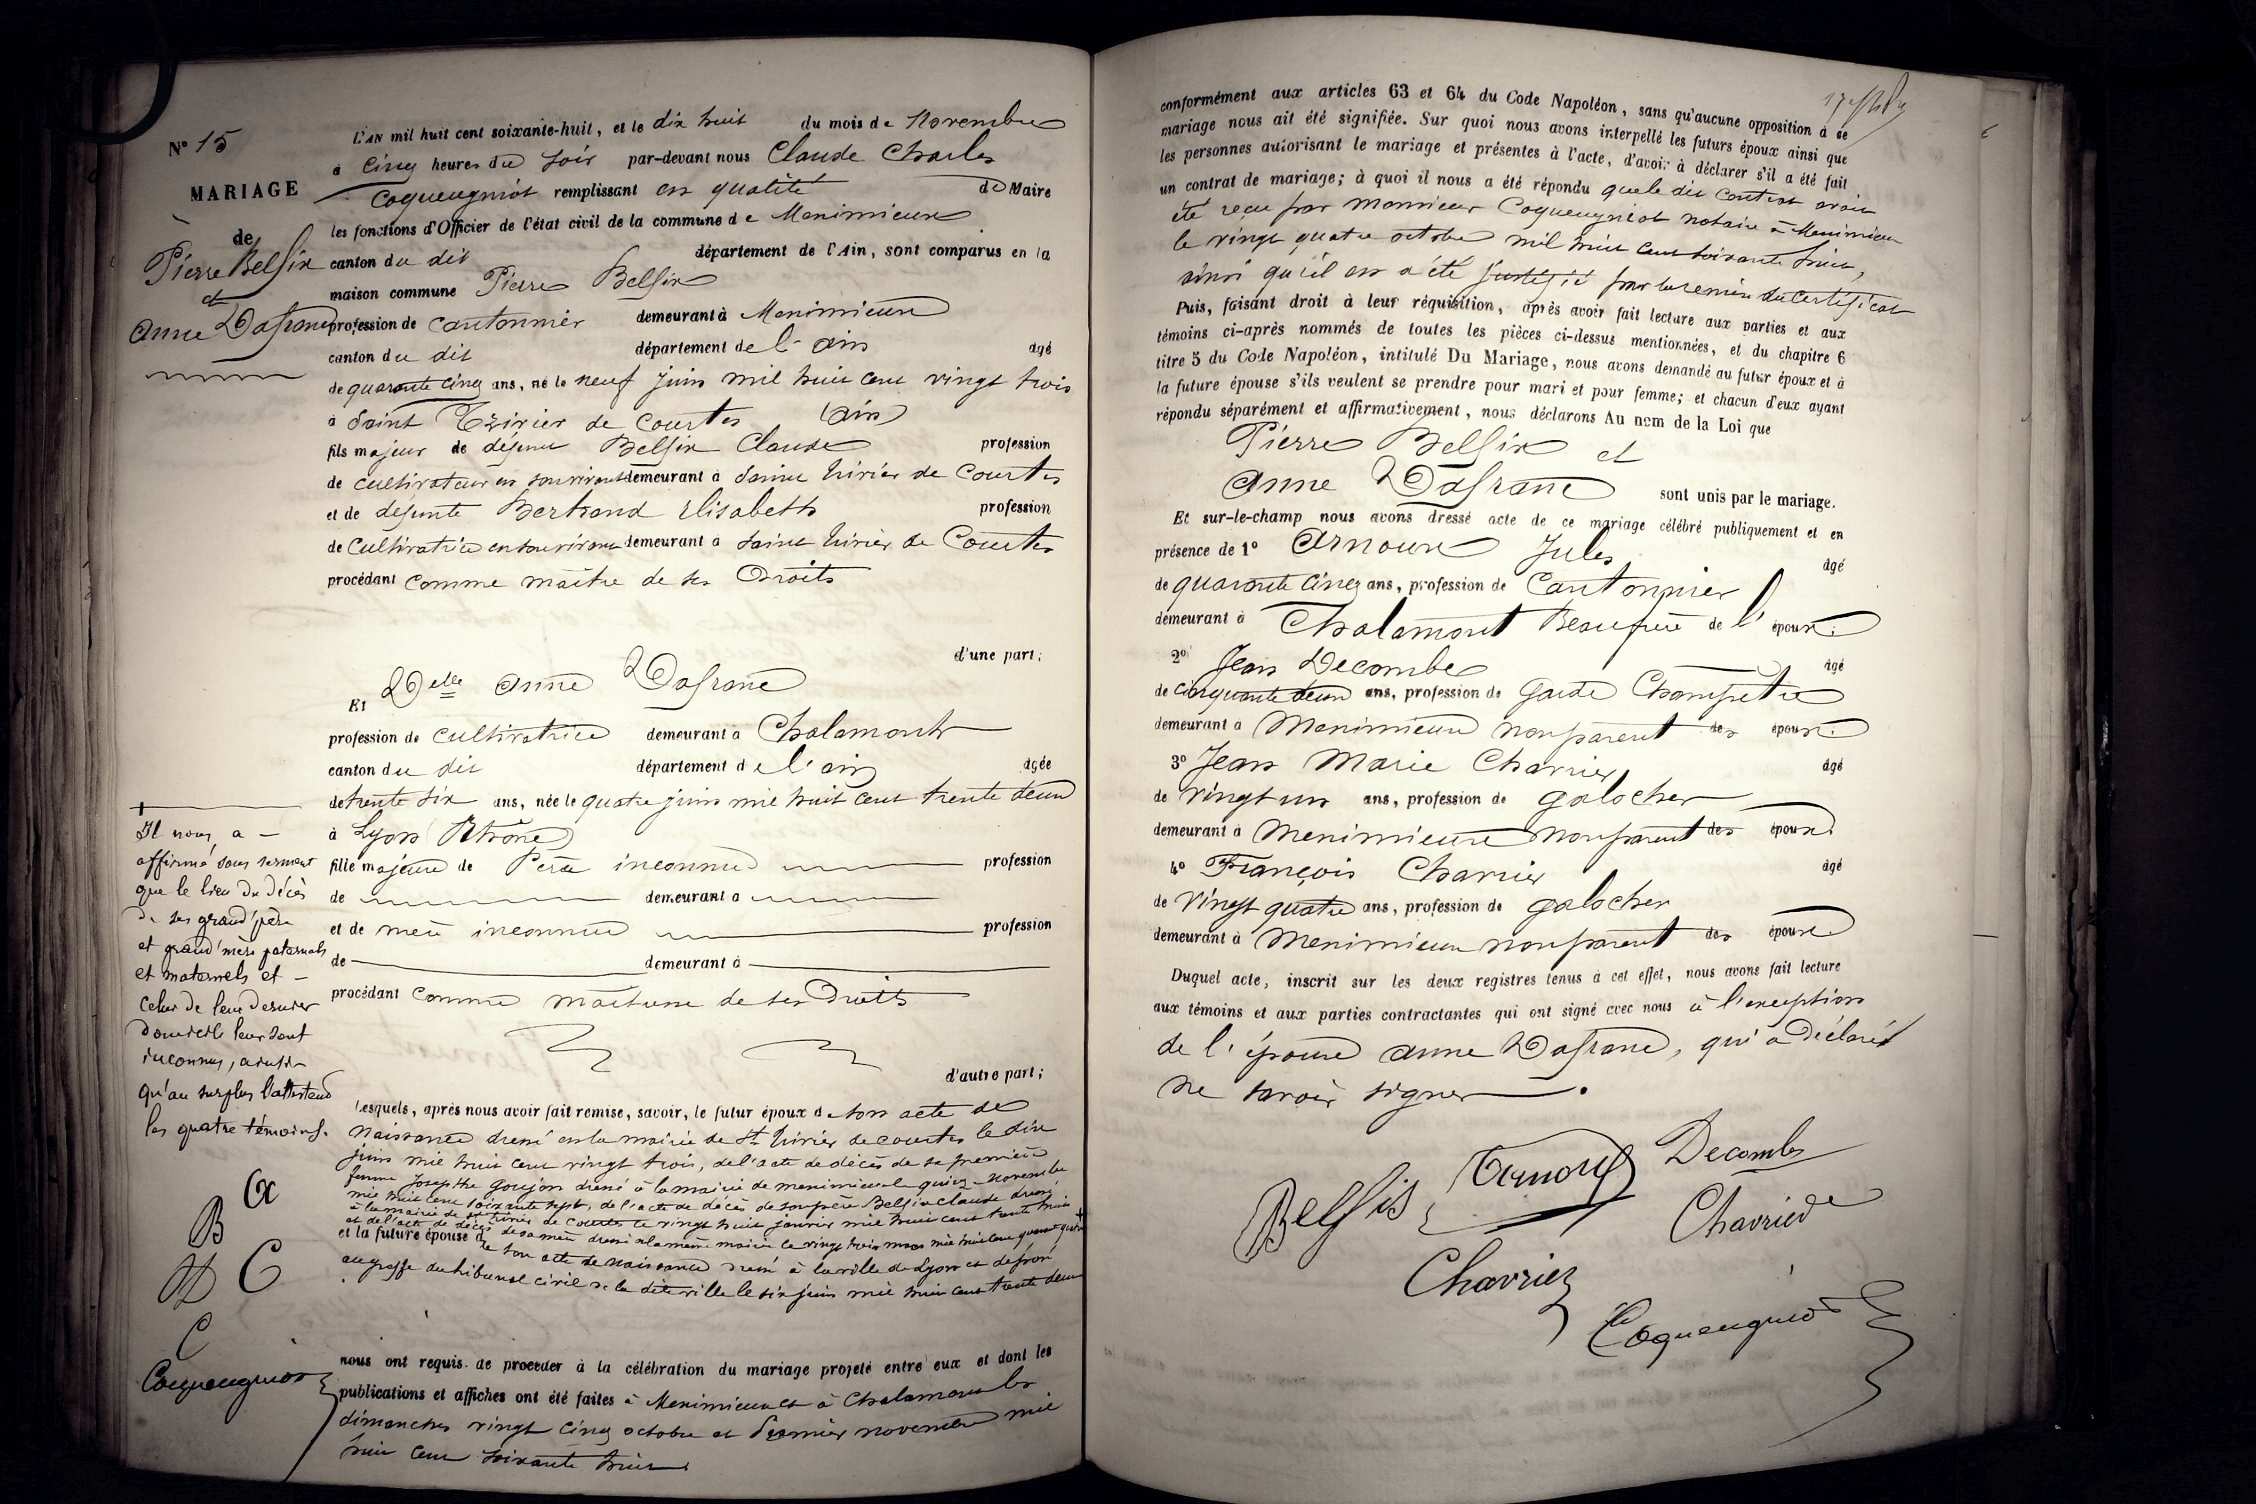 N° 15
MARIAGE
de
Pierre Belfix
et
Anne Dafrane
L'AN mil huit cent soixante-huit, et le dix huit du mois de Novembre
à Cinq heures du soir par-devant nous Claude Charles
Coqueugniot remplissant en qualité de Maire
les fonctions d'Officier de l'état civil de la commune de Meximieux
canton du dit département de l'Ain, sont comparus en la
maison commune Pierre Belfix
profession de cantonnier demeurant à Meximieux
canton du dit département de l'ain âgé
de quarante cinq ans, né le neuf juin mil huit cent vingt trois
à Saint Trivier de Courtes (ain)
fils majeur de défunt Belfix Claude profession
de cultivateur en son vivant demeurant à Saint Trivier de Courtes
et de défunte Bertrand Elisabeth profession
de Cultivatrice en son vivant demeurant à Saint Trivier de Courtes
procédant comme maître de ses Droits
d'une part;
Et Delle Anne Dafrane
profession de cultivatrice demeurant à Chalamont
canton du dit département de l'ain âgée
de trente six ans, née le quatre juin mil huit cent trente deux
à Lyon Rhône
fille majeure de Père inconnu profession
de demeurant à
et de mère inconnue profession
de demeurant à
procédant comme maîtresse de ses Droits
d'autre part;
Il nous a
affirmé sous serment
que le lieu du décès
de ses grand'père
et grand'mère paternels
et maternels et
celui de leur dernier
domicile leur sont
inconnus, ainsi
qu'au surplus l'attestent
les quatre témoins.
Lesquels, après nous avoir fait remise, savoir, le futur époux de son acte de
Naissance dressé en la mairie de St Trivier de courtes le dix
juin mil huit cent vingt trois, de l'acte de décès de sa première
femme Josephte Goujon dressé à la mairie de meximieux le quinze Novembre
mil huit cent soixante sept, de l'acte de décès de son père Belfix claude dressé
à la mairie de St Trivier de Courtes le vingt huit janvier mil huit cent trente huit
et de l'acte de décès de sa mère dressé à la même mairie le vingt trois mars mil huit cent quarante quatre
et la future épouse de son acte de Naissance dressé à la ville de Lyon et déposé
au greffe du tribunal civil de la dite ville le six juin mil huit cent trente deux
nous ont requis de procéder à la célébration du mariage projeté entre eux et dont les
publications et affiches ont été faites à Meximieux et à Chalamont les
dimanches vingt cinq octobre et Premier novembre mil
huit cent soixante huit
B
C
C
Coqueugniot
conformément aux articles 63 et 64 du Code Napoléon, sans qu'aucune opposition à ce
mariage nous ait été signifiée. Sur quoi nous avons interpellé les futurs époux ainsi que
les personnes autorisant le mariage et présentes à l'acte, d'avoir à déclarer s'il a été fait
un contrat de mariage; à quoi il nous a été répondu que le dit contrat avait
été reçu par Monsieur Coqueugniot notaire à Meximieux
le vingt quatre octobre mil huit cent soixante huit,
ainsi qu'il en a été justifié par la remise du certificat
Puis, faisant droit à leur réquisition, après avoir fait lecture aux parties et aux
témoins ci-après nommés de toutes les pièces ci-dessus mentionnées, et du chapitre 6
titre 5 du Code Napoléon, intitulé Du Mariage, nous avons demandé au futur époux et à
la future épouse s'ils veulent se prendre pour mari et pour femme; et chacun d'eux ayant
répondu séparément et affirmativement, nous déclarons Au nom de la Loi que
Pierre Belfix et
Anne Dafrane sont unis par le mariage.
Et sur-le-champ nous avons dressé acte de ce mariage célébré publiquement et en
présence de 1° Arnoux Jules âgé
de quarante cinq ans, profession de Cantonnier
demeurant à Chalamont Beaufrère de l'époux.
2° Jean Decombe âgé
de cinquante deux ans, profession de Garde Champêtre
demeurant à Meximieux non parent des époux.
3° Jean Marie Charrier âgé
de vingt un ans, profession de galocher
demeurant à Meximieux non parent des époux.
4° François Charrier âgé
de vingt quatre ans, profession de galocher
demeurant à Meximieux non parent des époux
Duquel acte, inscrit sur les deux registres tenus à cet effet, nous avons fait lecture
aux témoins et aux parties contractantes qui ont signé avec nous à l'exception
de l'épouse Anne Dafrane, qui a Déclaré
ne savoir signer.
Belfis Arnoux Decombe
Charrier
Charrier
Coqueugniot